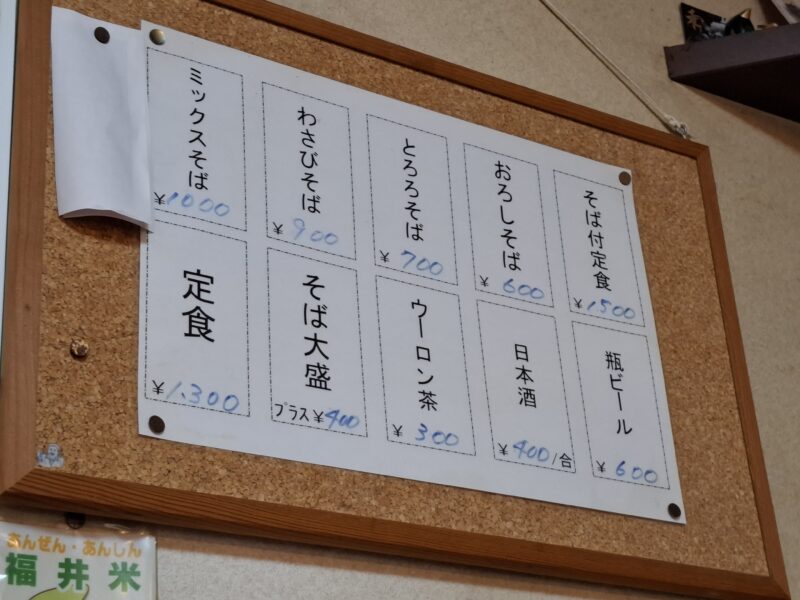 そば付定食
¥1500
おろしそば
¥600
とろろそば
¥700
わさびそば
¥900
ミックスそば
¥1000
瓶ビール
¥600
日本酒
¥400/合
ウーロン茶
¥300
そば大盛
プラス¥400
定食
¥1,300
あんぜん・あんしん
福井米